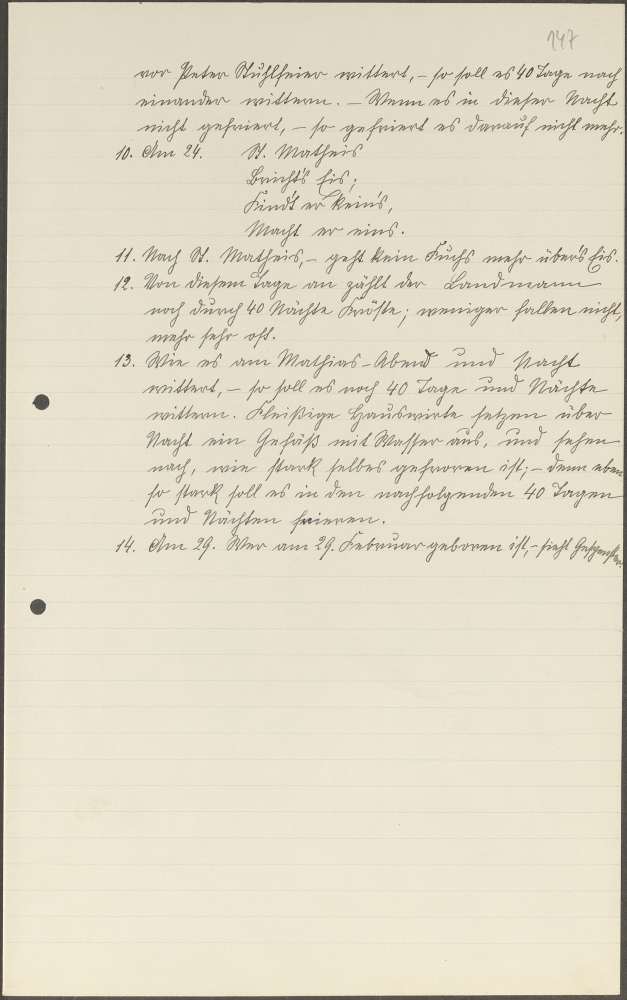 147
vor Peter Stuhlfeier wittert, – so soll es 40 Tage nach
einander wittern. – Wenn es in dieser Nacht
nicht gefriert, – so gefriert es darauf nicht mehr.
10. Am 24. St. Matheis
Bricht's Eis;
Find't er kein's,
Macht er eins.
11. Nach St. Matheis, – geht kein Fuchs mehr über's Eis.
12. Von diesem Tage an zählt der Landmann
noch durch 40 Nächte Fröste; weniger fallen nicht,
mehr sehr oft.
13. Wie es am Mathias-Abend und Nacht
wittert, – so soll es noch 40 Tage und Nächte
wittern. Fleißige Hauswirte setzen über
Nacht ein Gefäß mit Wasser aus, und sehen
nach, wie stark selbes gefroren ist; – denn eben
so stark soll es in den nachfolgenden 40 Tagen
und Nächten frieren.
14. Am 29. Wer am 29. Februar geboren ist, – sieht Gespenster.